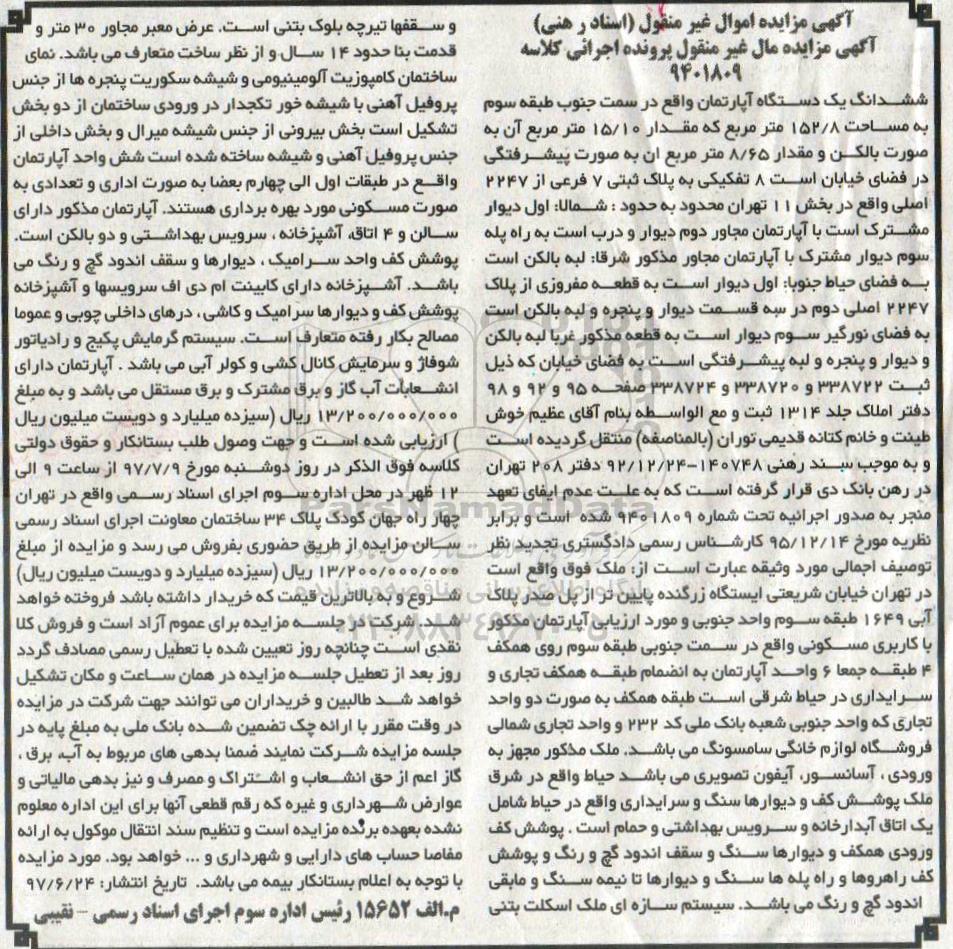 آگهی مزایده اموال غیر منقول (اسناد رهنی)
آگهی مزایده مال غیر منقول پرونده اجرائی کلاسه
۹۴۰۱۸۰۹
ششدانگ یک دستگاه آپارتمان واقع در سمت جنوب طبقه سوم
به مساحت ۱۵۲/۸ متر مربع که مقدار ۱۵/۱۰ متر مربع آن به
صورت بالکن و مقدار ۸/۶۵ متر مربع ان به صورت پیشرفتگی
در فضای خیابان است ۸ تفکیکی به پلاک ثبتی ۷ فرعی از ۲۲۴۷
اصلی واقع در بخش ۱۱ تهران محدود به حدود : شمالا: اول دیوار
مشترک است با آپارتمان مجاور دوم دیوار و درب است به راه پله
سوم دیوار مشترک با آپارتمان مجاور مذکور شرقا: لبه بالکن است
به فضای حیاط جنوبا: اول دیوار است به قطعه مفروزی از پلاک
۲۲۴۷ اصلی دوم در سه قسمت دیوار و پنجره و لبه بالکن است
به فضای نورگیر سوم دیوار است به قطعه مذکور غربا لبه بالکن
و دیوار و پنجره و لبه پیشرفتگی است به فضای خیابان که ذیل
ثبت ۳۳۸۷۲۲ و ۳۳۸۷۲۰ و ۳۳۸۷۲۴ صفحه ۹۵ و ۹۲ و ۹۸
دفتر املاک جلد ۱۳۱۴ ثبت و مع الواسطه بنام آقای عظیم خوش
طینت و خانم کتانه قدیمی توران (بالمناصفه) منتقل گردیده است
و به موجب سند رهنی ۱۴۰۷۴۸-۹۲/۱۲/۲۴ دفتر ۲۰۸ تهران
در رهن بانک دی قرار گرفته است که به علت عدم ایفای تعهد
منجر به صدور اجرائیه تحت شماره ۹۴۰۱۸۰۹ شده است و برابر
نظریه مورخ ۹۵/۱۲/۱۴ کارشناس رسمی دادگستری تجدید نظر
توصیف اجمالی مورد وثیقه عبارت است از: ملک فوق واقع است
در تهران خیابان شریعتی ایستگاه زرگنده پایین تر از پل صدر پلاک
آبی ۱۶۴۹ طبقه سوم واحد جنوبی و مورد ارزیابی آپارتمان مذکور
با کاربری مسکونی واقع در سمت جنوبی طبقه سوم روی همکف
۴ طبقه جمعا ۶ واحد آپارتمان به انضمام طبقه همکف تجاری و
سرایداری در حیاط شرقی است طبقه همکف به صورت دو واحد
تجاری که واحد جنوبی شعبه بانک ملی کد ۲۳۲ و واحد تجاری شمالی
فروشگاه لوازم خانگی سامسونگ می باشد. ملک مذکور مجهز به
ورودی ، آسانسور، آیفون تصویری می باشد حیاط واقع در شرق
ملک پوشش کف و دیوارها سنگ و سرایداری واقع در حیاط شامل
یک اتاق آبدارخانه و سرویس بهداشتی و حمام است . پوشش کف
ورودی همکف و دیوارها سنگ و سقف اندود گچ و رنگ و پوشش
کف راهروها و راه پله ها سنگ و دیوارها تا نیمه سنگ و مابقی
اندود گچ و رنگ می باشد. سیستم سازه ای ملک اسکلت بتنی
و سقفها تیرچه بلوک بتنی است. عرض معبر مجاور ۳۰ متر و
قدمت بنا حدود ۱۴ سال و از نظر ساخت متعارف می باشد. نمای
ساختمان کامپوزیت آلومینیومی و شیشه سکوریت پنجره ها از جنس
پروفیل آهنی با شیشه خور تکجدار در ورودی ساختمان از دو بخش
تشکیل است بخش بیرونی از جنس شیشه میرال و بخش داخلی از
جنس پروفیل آهنی و شیشه ساخته شده است شش واحد آپارتمان
واقع در طبقات اول الی چهارم بعضا به صورت اداری و تعدادی به
صورت مسکونی مورد بهره برداری هستند. آپارتمان مذکور دارای
سالن و ۴ اتاق، آشپزخانه ، سرویس بهداشتی و دو بالکن است.
پوشش کف واحد سرامیک ، دیوارها و سقف اندود گچ و رنگ می
باشد. آشپزخانه دارای کابینت ام دی اف سرویسها و آشپزخانه
پوشش کف و دیوارها سرامیک و کاشی ، درهای داخلی چوبی و عموما
مصالح بکار رفته متعارف است. سیستم گرمایش پکیج و رادیاتور
شوفاژ و سرمایش کانال کشی و کولر آبی می باشد . آپارتمان دارای
انشعابات آب گاز و برق مشترک و برق مستقل می باشد و به مبلغ
۱۳/۲۰۰/۰۰۰/۰۰۰ ریال (سیزده میلیارد و دویست میلیون ریال
) ارزیابی شده است و جهت وصول طلب بستانکار و حقوق دولتی
کلاسه فوق الذکر در روز دوشنبه مورخ ۹۷/۷/۹ از ساعت ۹ الی
۱۲ ظهر در محل اداره سوم اجرای اسناد رسمی واقع در تهران
چهار راه جهان کودک پلاک ۳۴ ساختمان معاونت اجرای اسناد رسمی
سالن مزایده از طریق حضوری بفروش می رسد و مزایده از مبلغ
۱۳/۲۰۰/۰۰۰/۰۰۰ ریال (سیزده میلیارد و دویست میلیون ریال)
شروع و به بالاترین قیمت که خریدار داشته باشد فروخته خواهد
شد. شرکت در جلسه مزایده برای عموم آزاد است و فروش کلا
نقدی است چنانچه روز تعیین شده با تعطیل رسمی مصادف گردد
روز بعد از تعطیل جلسه مزایده در همان ساعت و مکان تشکیل
خواهد شد طالبین و خریداران می توانند جهت شرکت در مزایده
در وقت مقرر با ارائه چک تضمین شده بانک ملی به مبلغ پایه در
جلسه مزایده شرکت نمایند ضمنا بدهی های مربوط به آب، برق ،
گاز اعم از حق انشعاب و اشتراک و مصرف و نیز بدهی مالیاتی و
عوارض شهرداری و غیره که رقم قطعی آنها برای این اداره معلوم
نشده بعهده برنده مزایده است و تنظیم سند انتقال موکول به ارائه
مفاصا حساب های دارایی و شهرداری و ... خواهد بود. مورد مزایده
با توجه به اعلام بستانکار بیمه می باشد. تاریخ انتشار: ۹۷/۶/۲۴
م.الف ۱۵۶۵۲ رئیس اداره سوم اجرای اسناد رسمی - نقیبی
ParsNamadData